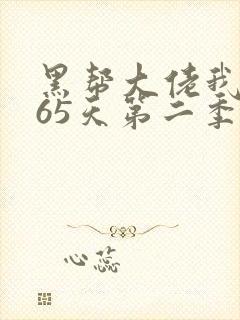 黑帮大佬我
65天第二季
心蕊